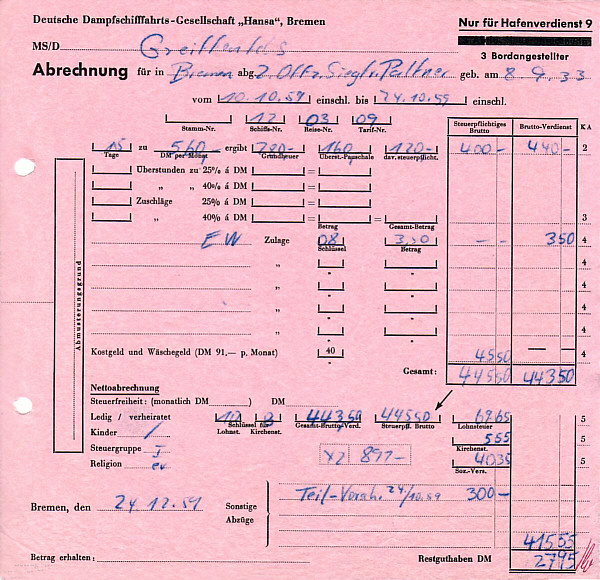 Deutsche Dampfschifffahrts-Gesellschaft „Hansa", Bremen
Nur für Hafenverdienst 9
MS/D
3 Bordangestellter
Abrechnung für in Bremen abg. 2. Offz. Siegfr. geb. am 8. 9. 33
vom 10.10.59 einschl. bis 24.10.59 einschl.
12 03 09
Stamm-Nr. Schiffs-Nr. Reise-Nr. Tarif-Nr.
Steuerpflichtiges Brutto Brutto-Verdienst K A
15 zu 560,- ergibt 280,- 160 120,- 400- 440- 2
Tage DM per Monat Grundheuer Überst.-Pauschale dav. steuerpflicht.
Überstunden zu 25% á DM =
„ „ 40% á DM =
Zuschläge 25% á DM =
„ 40% á DM = = 3
Betrag Gesamt-Betrag
EW Zulage 08 3,50 - - 350 4
Schlüssel Betrag
„ 4
„ 4
„ 4
„ 4
Abmusterungsgrund
Kostgeld und Wäschegeld (DM 91,— p. Monat) 40 4550 — 4
Gesamt: 44550 44350
Nettoabrechnung
Steuerfreiheit: (monatlich DM ) DM
Ledig / verheiratet 10 44350 44550 6865 5
Schlüssel für Lohnst. Kirchenst. Gesamt-Brutto-Verd. Steuerpfl. Brutto Lohnsteuer
Kinder / 555
Kirchenst.
Steuergruppe I 891- 4035 5
Soz.-Vers.
Religion ev
Teil-Vorsch. 24/10.59 300-
Bremen, den 24.12.59 Sonstige Abzüge
41555
Betrag erhalten: Restguthaben DM 2795